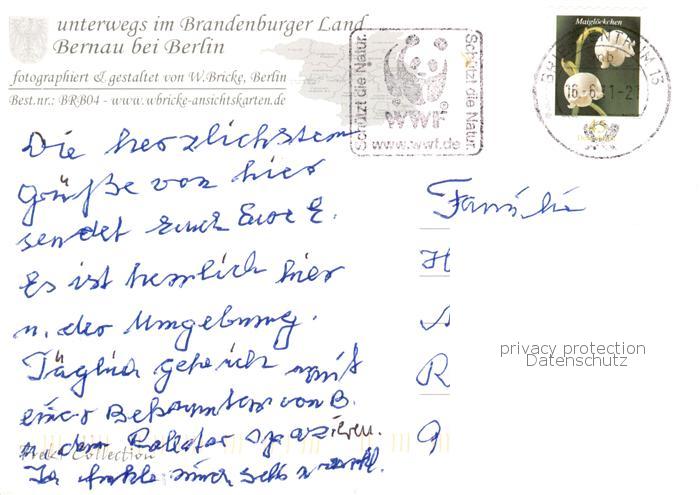 unterwegs im Brandenburger Land
Bernau bei Berlin
fotographiert & gestaltet von W.Bricke, Berlin
Best.nr.: BRB04 - www.wbricke-ansichtskarten.de
Schützt die Natur.
WWF
www.wwf.de
Schützt die Natur.
Maiglöckchen
BRIEFZENTRUM 13
16-6.11-21
Die herzlichsten
Grüße von hier
sendet Euch Eure E.
Es ist herrlich hier
u. der Umgebung.
Täglich gehe ich mit
einer Bekannten von B.
u. dem Rollator spazieren.
Ich fühle mich sehr wohl.
Collection
Familie
H
A
R
9
privacy protection
Datenschutz